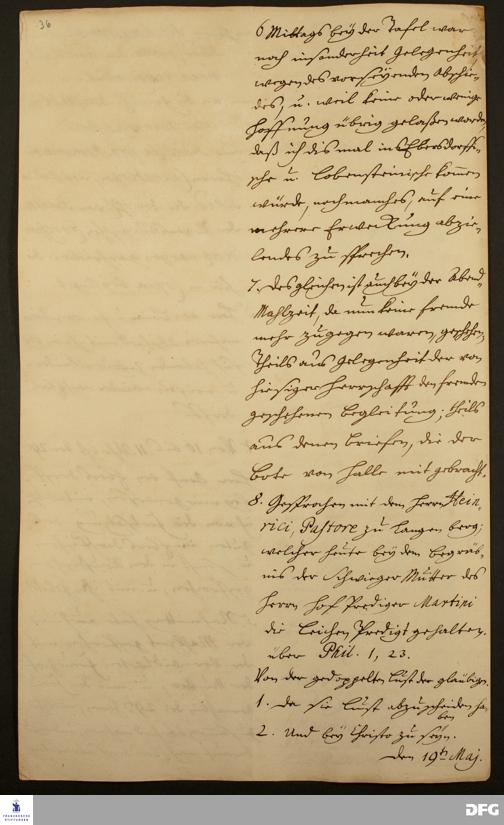 36
6 Mittags beÿ der Tafel war
noch insonderheit Gelegenheit
wegen des vorseÿenden Abschie-
des, u. weil keine oder wenige
Hoffnung übrig gelaßen worden,
daß ich dis mal ins Ebersdorffi-
sche u. Lobensteinische kom̄en
würde, noch manches, auf eine
mehrere Erweckung abzie-
lendes zu sprechen.
7. Desgleichen ist auch beÿ der Abend-
Mahlzeit, da nun keine fremde
mehr zugegen waren, geschehen,
Theils aus Gelegenheit der von
hiesiger Herrschafft den fremden
geschehenen Begleitung; theils
aus denen Briefen, die der
Bote von Halle mit gebracht.
8. Gesprochen mit dem Herrn Hein-
rici, Pastore zu Langenberg;
welcher heute beÿ dem Begräb-
nis der Schwieger Mutter des
Herrn Hof Prediger Martini
die Leichen Predigt gehalten.
über Phil. 1, 23.
Von der gedoppelten Lust der gläubigen.
1. Da sie Lust abzuscheiden ha-
ben
2. Und beÿ Christo zu seÿn.
Den 19ten Maj.
FRANCKESCHE
STIFTUNGEN
DFG